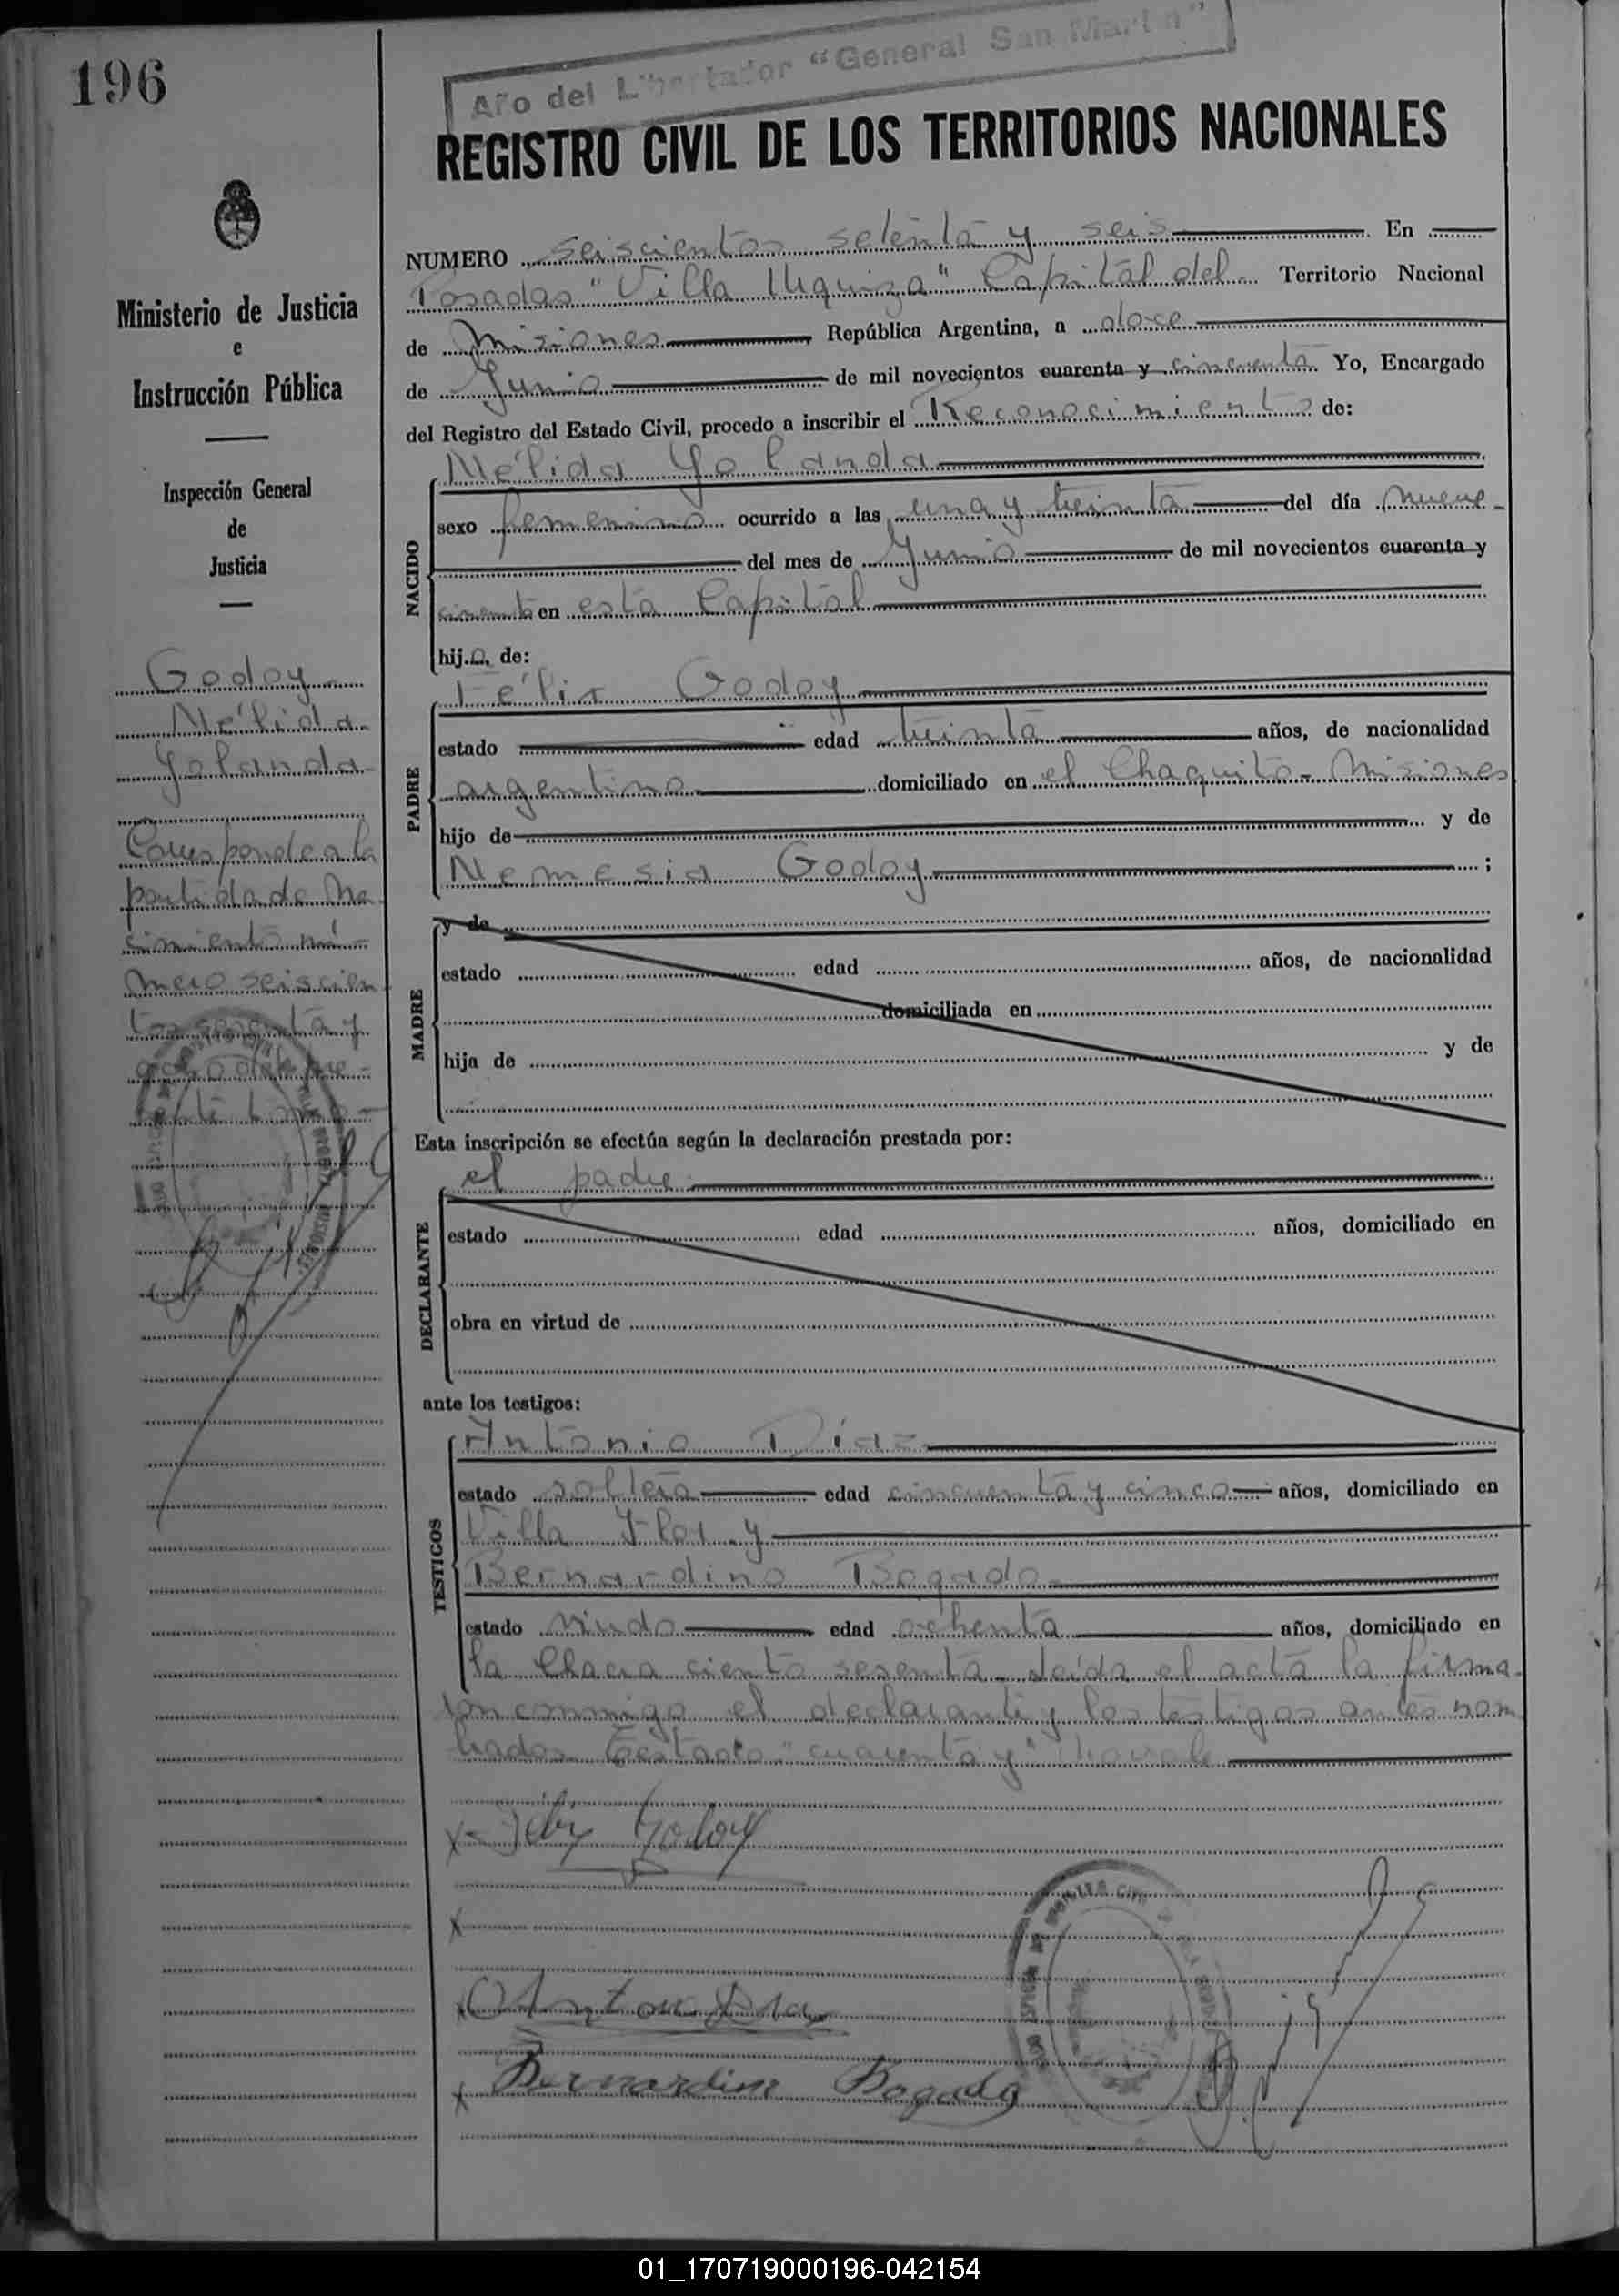 196
Año del Libertador "General San Martin"
REGISTRO CIVIL DE LOS TERRITORIOS NACIONALES
Ministerio de Justicia
e
Instrucción Pública
Inspección General
de
Justicia
Godoy
Nélida
Yolanda
Corresponde a la
partida de Na
cimiento nú-
mero seiscien
tos sesenta y
NUMERO seiscientos setenta y seis En
Posadas "Villa Urquiza" Capital del Territorio Nacional
de Misiones República Argentina, a doce
de Junio de mil novecientos cuarenta y cincuenta Yo, Encargado
del Registro del Estado Civil, procedo a inscribir el Reconocimiento de:
NACIDO
Nélida Yolanda
sexo femenino ocurrido a las una y treinta del día nueve
del mes de Junio de mil novecientos cuarenta y
cincuenta en esta Capital
hija de:
PADRE
Félix Godoy
estado edad treinta años, de nacionalidad
argentino domiciliado en el Chaquito - Misiones
hijo de y de
Nemesia Godoy ;
MADRE
y de
estado edad años, de nacionalidad
domiciliada en
hija de y de
Esta inscripción se efectúa según la declaración prestada por:
DECLARANTE
el padre
estado edad años, domiciliado en
obra en virtud de
ante los testigos:
TESTIGOS
Antonio Díaz
estado soltero edad cincuenta y cinco años, domiciliado en
Villa Flor y
Bernardino Bogado
estado viudo edad ochenta años, domiciliado en
la Chacra ciento sesenta. Leída el acta la firma-
ron conmigo el declarante y los testigos antes nom
brados. Testado "cuarenta y" no vale
x Félix Godoy
x
x Antonio Diaz
x Bernardino Bogado
01_170719000196-042154